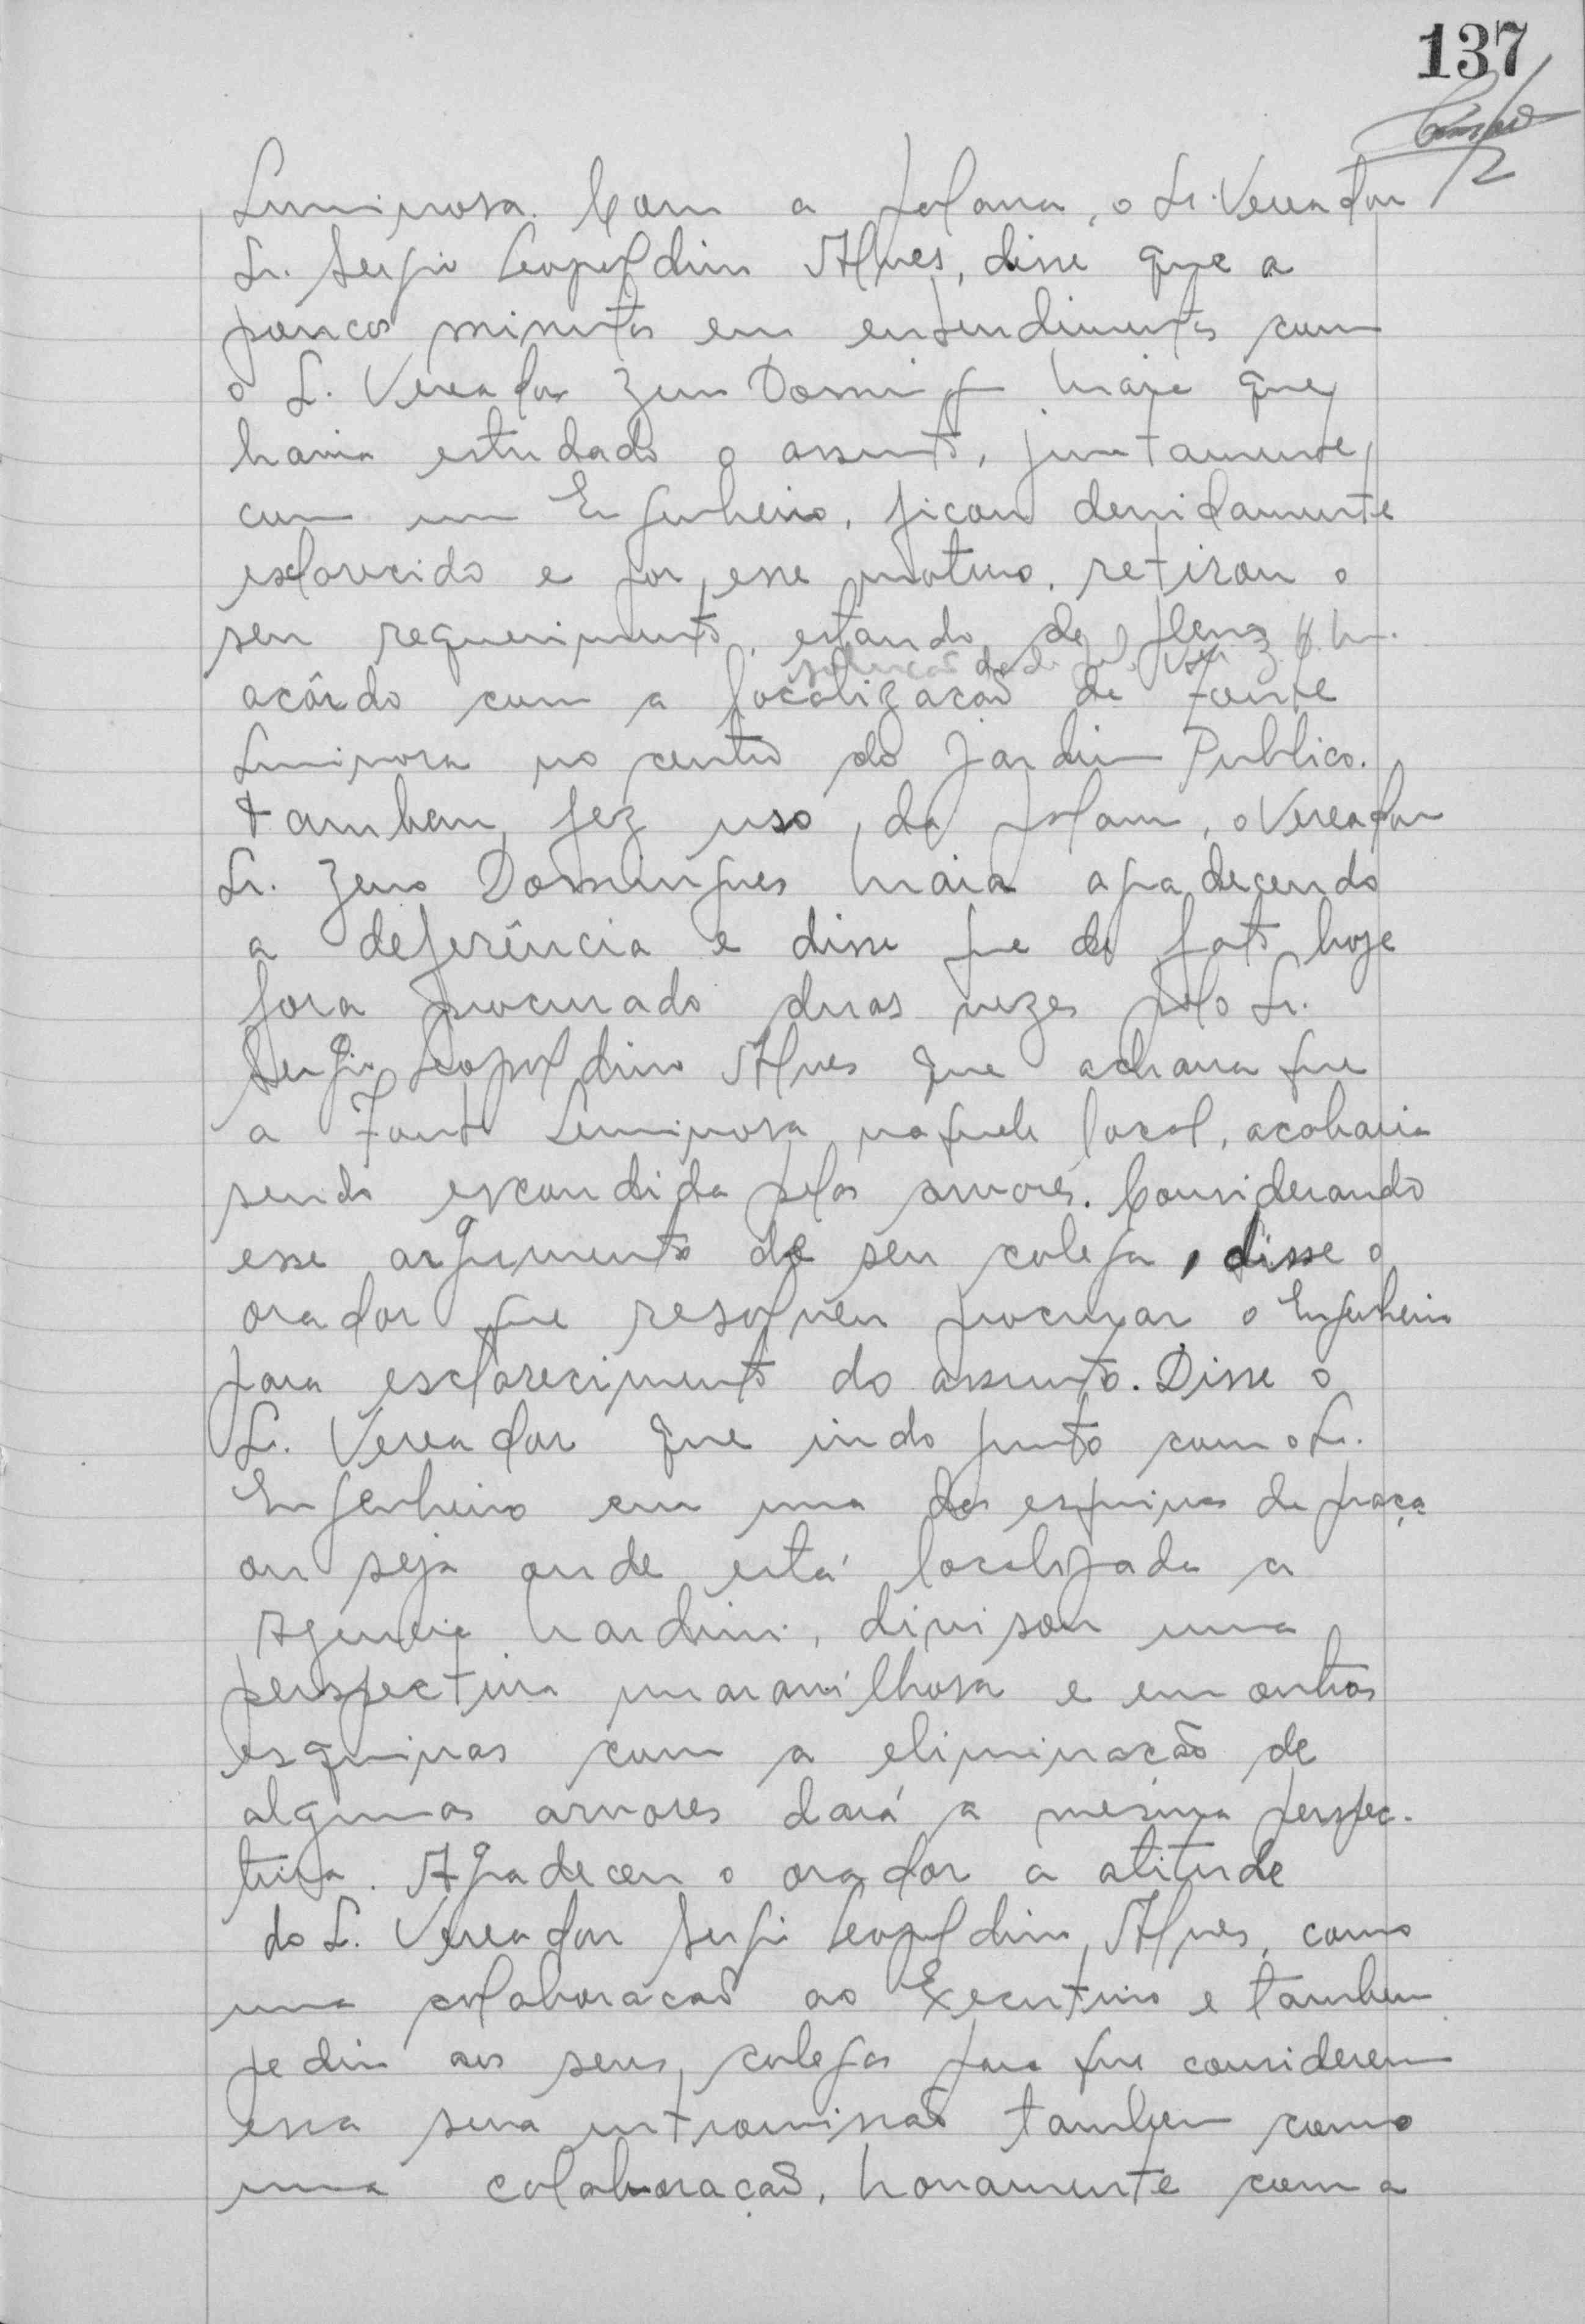 137
Luminosa. Com a palavra, o Sr. Vereador
Sr. Sergio Leopoldino Alves, disse que a
poucos minutos em entendimentos com
o Sr. Vereador Zeno Doming Maia que
havia estudado o assunto, juntamente
com um Engenheiro, ficou devidamente
esclarecido e por esse motivo, retirou o
seu requerimento, estando de pleno
solução dada pelo Ver. Z. D. M.
acôrdo com a localização da Fonte
Luminosa no centro do Jardim Publico.
Tambem fez uso da palavra, o Vereador
Sr. Zeno Domingues Maia agradecendo
a deferência e disse que de fato hoje
fora procurado duas vezes pelo Sr.
Sergio Leopoldino Alves que achava que
a Fonte Luminosa naquele local, acabaria
sendo escondida pelas arvores. Considerando
esse argumento de seu colega, disse o
orador que resolveu procurar o Engenheiro
para esclarecimento do assunto. Disse o
Sr. Vereador que indo junto com o Sr.
Engenheiro em uma das esquinas da praça
ou seja onde está localizada a
Agencia Nardini, divisou uma
perspectiva maravilhosa e em outras
esquinas com a eliminação de
algumas arvores dará a mesma perspec-
tiva. Agradeceu o orador a atitude
do Sr. Vereador Sergio Leopoldino Alves, como
uma colaboração ao Executivo e tambem
pediu aos seus colegas para que considerem
essa sua intromissão tambem como
uma colaboração. Novamente com a